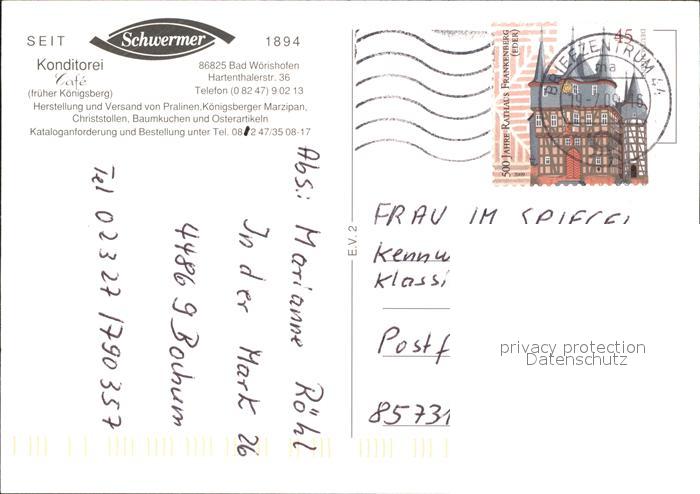 SEIT Schwermer 1894
Konditorei
Café
(früher Königsberg)
86825 Bad Wörishofen
Hartenthalerstr. 36
Telefon (0 82 47) 9 02 13
Herstellung und Versand von Pralinen, Königsberger Marzipan,
Christstollen, Baumkuchen und Osterartikeln
Kataloganforderung und Bestellung unter Tel. 08 2 47/35 08-17
Abs.: Marianne Röhl
In der Mark 26
44869 Bochum
Tel 02327/790357
E.V. 2
45
500 JAHRE RATHAUS FRANKENBERG
(EDER)
2009
BRIEFZENTRUM 44
ma
FRAU IM SPIEGEL
Kennw
Klassi
Postf
85731
privacy protection
Datenschutz